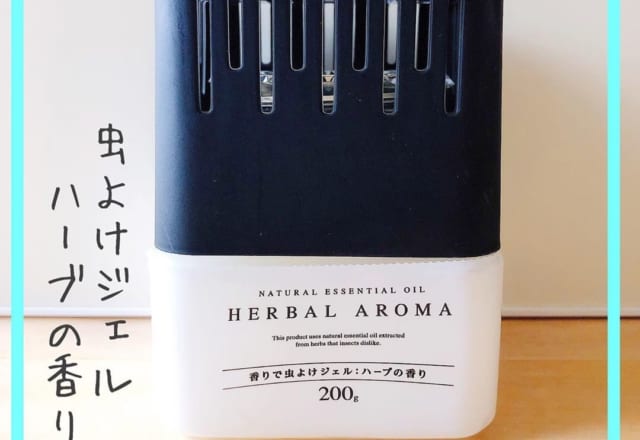 虫よけジェル
ハーブの香り
NATURAL ESSENTIAL OIL
HERBAL AROMA
This product uses natural essential oil extracted
from herbs that insects dislike.
香りで虫よけジェル:ハーブの香り
200g